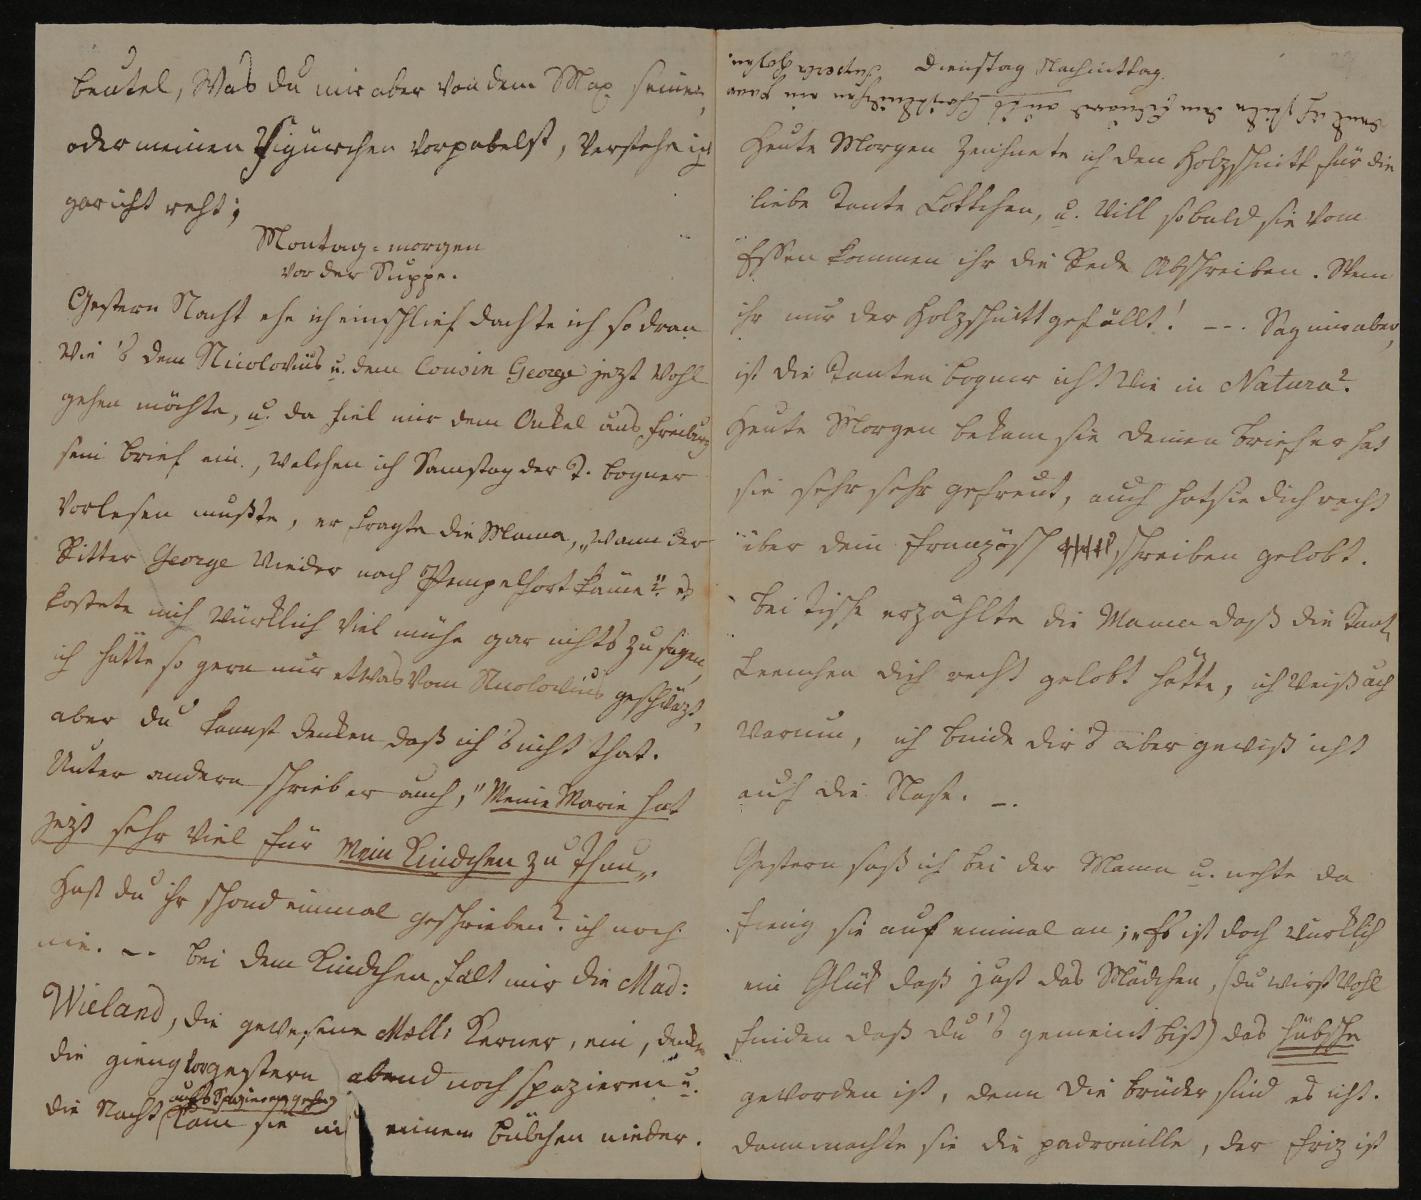 beutel, Was du mir aber von dem Max seinen,
oder meinen Figürchen vorpabelst, verstehe ich
gar icht reht;
Montag-morgen
vor der Suppe.
Gestern Nacht ehe ich einschlief dachte ich so dran
wie 's dem Nicolovius u. dem Cousin George jezt wohl
gehen möchte, u. da fiel mir dem Onkel aus Freiburg
sein brief ein, welchen ich Samstag der T. bogner
vorlesen mußte, er fragte die Mama, „wann der
Ritter George wieder nach Pempelfort käme" es
kostete mich würklich viel mühe gar nichts zu sagen,
ich hätte so gern nur etwas vom Nicolovius geschwäzt,
aber du kanst denken daß ich's nicht that.
Unter andern schrieb er auch, "Meine Marie hat
jezt sehr viel für mein Kindchen zu thun„.
Hast du ihr schond einmal geschrieben? ich noch
nie. – . bei dem Kindchen fält mir die Mad:
Wieland, die gewesene Mell: Kerner, ein, denk
die gieng vorgestern abend noch spazieren u.
aufs Spazierengehen
die Nacht kam sie mit einem bübchen nieder.
29
Dienstag Nachmittag.
Heute Morgen zeichnete ich den Holzschnitt für die
liebe Tante Lottchen, u. will sobald sie vom
Essen kommen ihr die Rede abschreiben. Wenn
ihr nur der Holzschnitt gefällt! – – . Sag mir aber,
ist die Tanten bogner icht wie in Natura?
Heute Morgen bekam sie deinen brief er hat
sie sehr sehr gefreut, auch hat sie dich recht
über dein französch schreiben gelobt.
bei Tische erzählte die Mama daß die Tante
Lenchen dich recht gelobt hätte, ich weiß ach
warum, ich binde dir's aber gewiß icht
auf die Nase. – .
Gestern saß ich bei der Mama u. nehte da
fieng sie auf einmal an; „Es ist doch würklich
ein Glük daß just das Mädchen, (du wirst wohl
finden daß du's gemeint bist) das hübsche
geworden ist, denn die brüder sind es icht.
dann machte sie die padrouille, der Friz ist